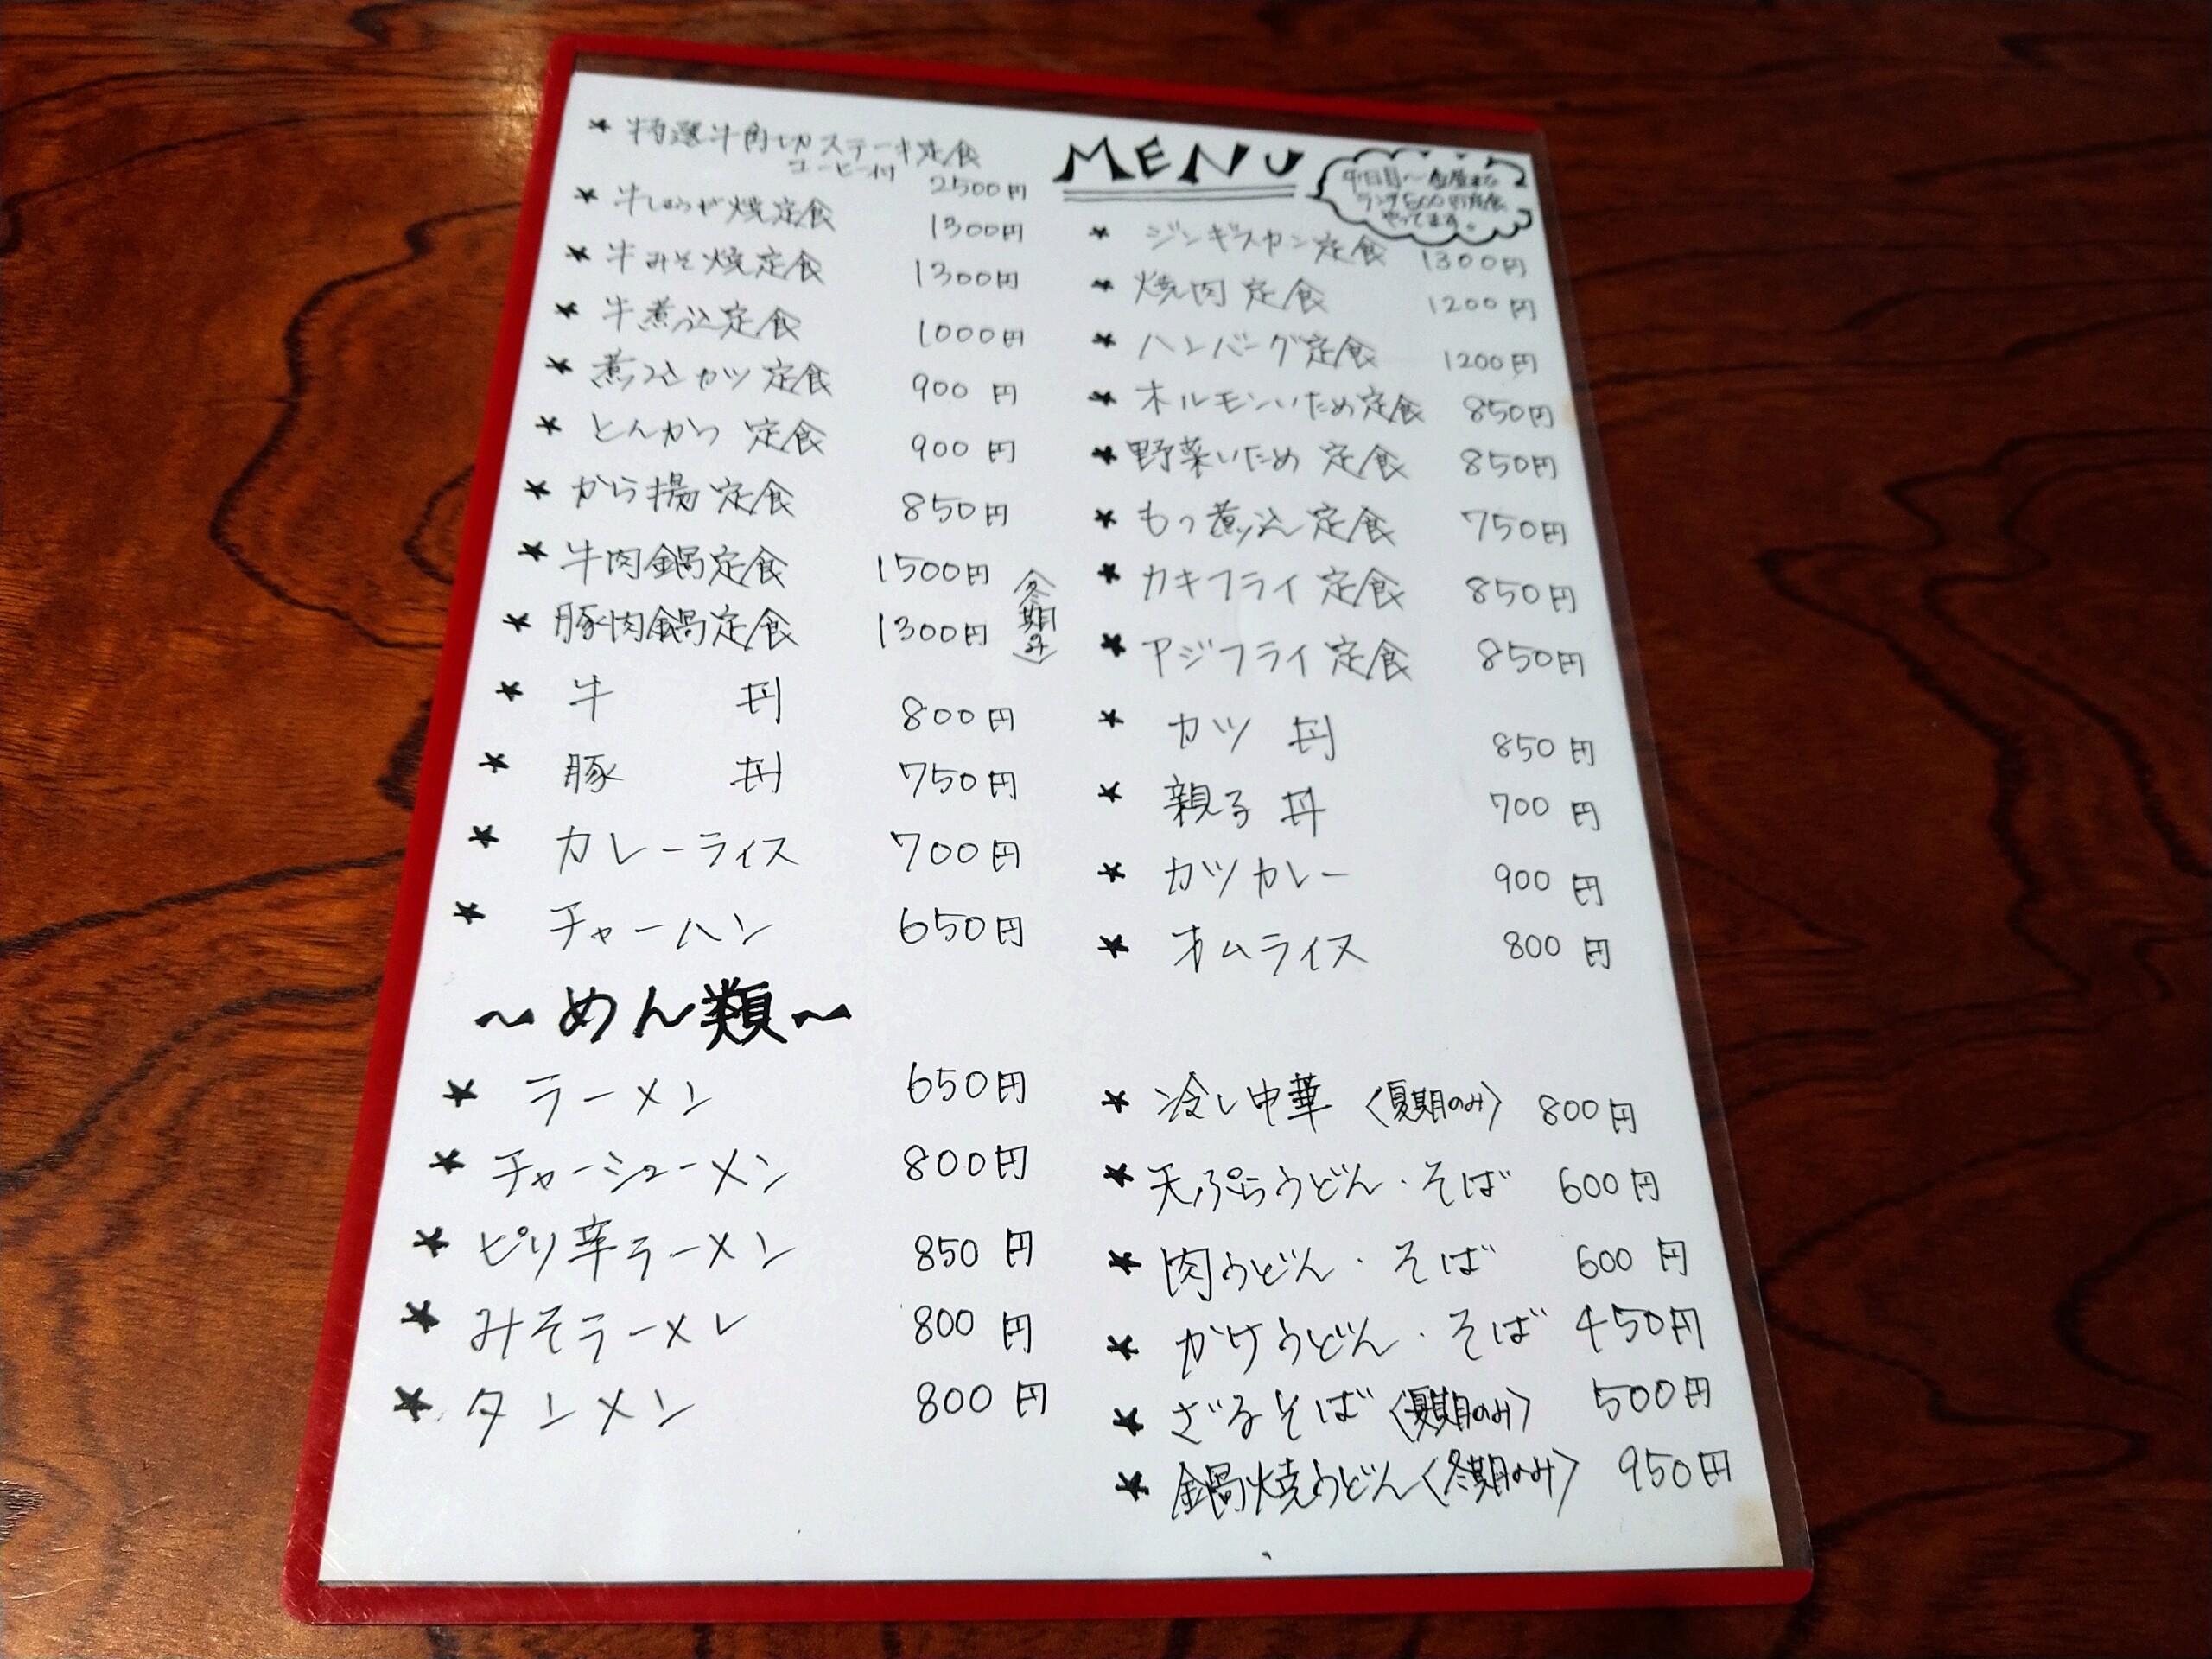 MENU
ランチ500円定食
やってます。
★ 特選牛角切ステーキ定食
コーヒー付 2500円
★ 牛しょうが焼定食 1300円
★ 牛みそ焼定食 1300円
★ 牛煮込定食 1000円
★ 煮込カツ定食 900円
★ とんかつ定食 900円
★ から揚定食 850円
★ 牛肉鍋定食 1500円
★ 豚肉鍋定食 1300円
〈冬期のみ〉
★ 牛丼 800円
★ 豚丼 750円
★ カレーライス 700円
★ チャーハン 650円
★ ジンギスカン定食 1300円
★ 焼肉定食 1200円
★ ハンバーグ定食 1200円
★ ホルモンいため定食 850円
★ 野菜いため定食 850円
★ もつ煮込定食 750円
★ カキフライ定食 850円
★ アジフライ定食 850円
★ カツ丼 850円
★ 親子丼 700円
★ カツカレー 900円
★ オムライス 800円
〜めん類〜
★ ラーメン 650円
★ チャーシューメン 800円
★ ピリ辛ラーメン 850円
★ みそラーメン 800円
★ タンメン 800円
★ 冷し中華〈夏期のみ〉 800円
★ 天ぷらうどん・そば 600円
★ 肉うどん・そば 600円
★ かけうどん・そば 450円
★ ざるそば〈夏期のみ〉 500円
★ 鍋焼うどん〈冬期のみ〉 950円